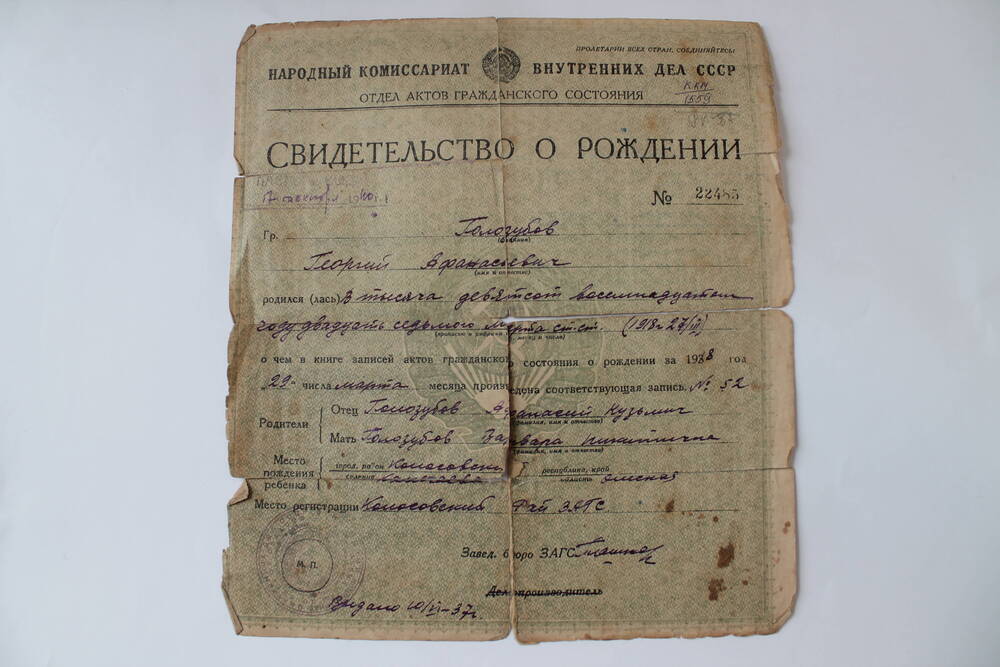 ПРОЛЕТАРИИ ВСЕХ СТРАН, СОЕДИНЯЙТЕСЬ!
НАРОДНЫЙ КОМИССАРИАТ ВНУТРЕННИХ ДЕЛ СССР
ОТДЕЛ АКТОВ ГРАЖДАНСКОГО СОСТОЯНИЯ
ККМ
1559
СВИДЕТЕЛЬСТВО О РОЖДЕНИИ
№ 22485
Гр. Голозубов
(фамилия)
Георгий Афанасьевич
(имя и отчество)
родился (лась) В тысяча девятсот восемнадцатом
году двадцать седьмого марта ст.ст. (1918 г 27/III)
о чем в книге записей актов гражданского состояния о рождении за 1938 год
"29" числа марта месяца произведена соответствующая запись № 52
Родители
Отец Голозубов Афанасий Кузьмич
(фамилия, имя и отчество)
Мать Голозубов Варвара Никитична
(фамилия, имя и отчество)
Место рождения ребенка
город, район Колосовский республика, край
селение область Омская
Место регистрации Колосовский Рай ЗАГС
Завед. бюро ЗАГС
М. П.
Делопроизводитель
Выдано 10/VI-37г.